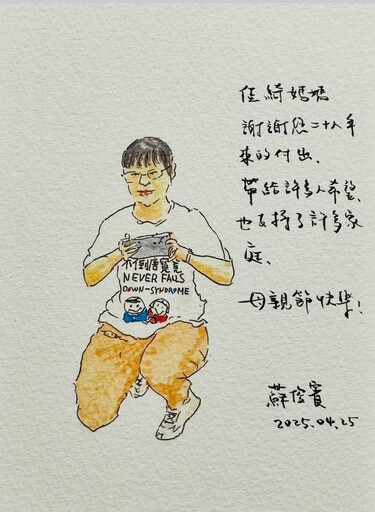 佳綺媽媽
謝謝您二十八年
來的付出、
帶給許多人希望、
也支持了許多家
庭、
母親節快樂!
蘇俊賓
2025.04.25
NEVER FALLS
DOWN-SYNDROME